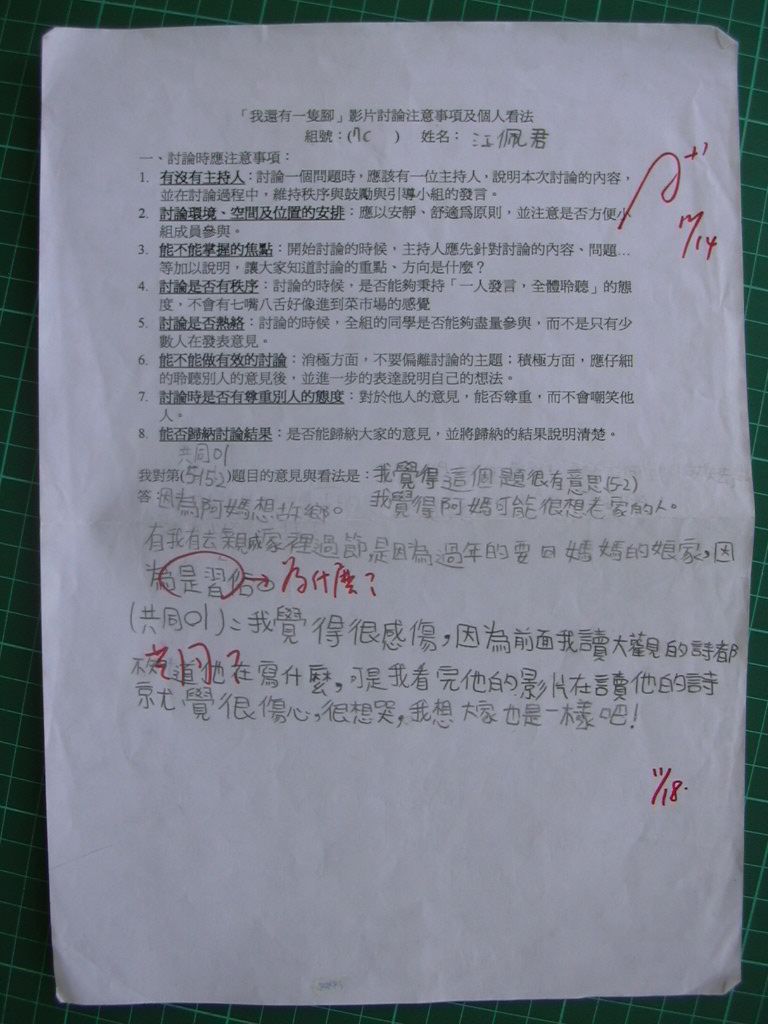 「我還有一隻腳」影片討論注意事項及個人看法
組號：(7C　) 姓名：江佩君
一、討論時應注意事項：
1. 有沒有主持人：討論一個問題時，應該有一位主持人，說明本次討論的內容，
並在討論過程中，維持秩序與鼓勵與引導小組的發言。
2. 討論環境、空間及位置的安排：應以安靜、舒適為原則，並注意是否方便小
組成員參與。
3. 能不能掌握的焦點：開始討論的時候，主持人應先針對討論的內容、問題…
等加以說明，讓大家知道討論的重點、方向是什麼？
4. 討論是否有秩序：討論的時候，是否能夠秉持「一人發言，全體聆聽」的態
度，不會有七嘴八舌好像進到菜市場的感覺
5. 討論是否熱絡：討論的時候，全組的同學是否能夠盡量參與，而不是只有少
數人在發表意見。
6. 能不能做有效的討論：消極方面，不要偏離討論的主題；積極方面，應仔細
的聆聽別人的意見後，並進一步的表達說明自己的想法。
7. 討論時是否有尊重別人的態度：對於他人的意見，能否尊重，而不會嘲笑他
人。
8. 能否歸納討論結果：是否能歸納大家的意見，並將歸納的結果說明清楚。
共同01
我對第(5152)題目的意見與看法是：我覺得這個題很有意思(52)
答：因為阿媽想故鄉。 我覺得阿媽可能很想老家的人。
有我有去親戚家裡過節,是因為過年的要回媽媽的娘家,因
為是習俗。→為什麼？
(共同01)：我覺得很感傷,因為前面我讀大觀的詩都
不知道他在寫什麼,可是我看完他的影片在讀他的詩
共同？
就覺很傷心,很想哭,我想大家也是一樣吧!
+1
11/14
11/18.